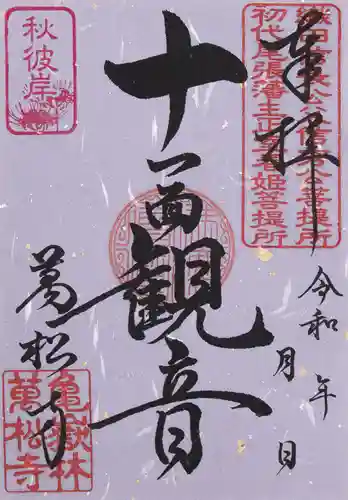 奉拝
織田信長公
初代尾張藩主正室春姫菩提所
令和 年
月 日
十一面観音
秋彼岸
萬松寺
亀嶽林
萬松寺